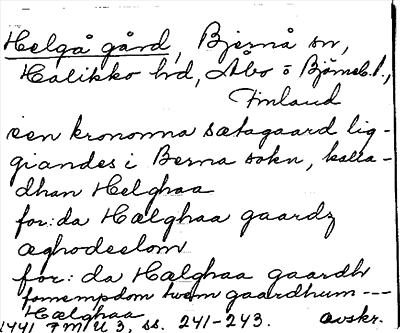 Helgå gård, Bjernå sn,
Halikko hd, Åbo o Björneb. l.,
Finland
een kronona sætagaard lig-
giandes i Berna sokn, kalla-
dhan Helghaa
for: da Hælghaa gaardz
æghodeelom
for: da Hælghaa gaardh
fæmempdom twem gaardhum ---
Hælghaa
1441 FMU 3, ss. 241-243. avskr.